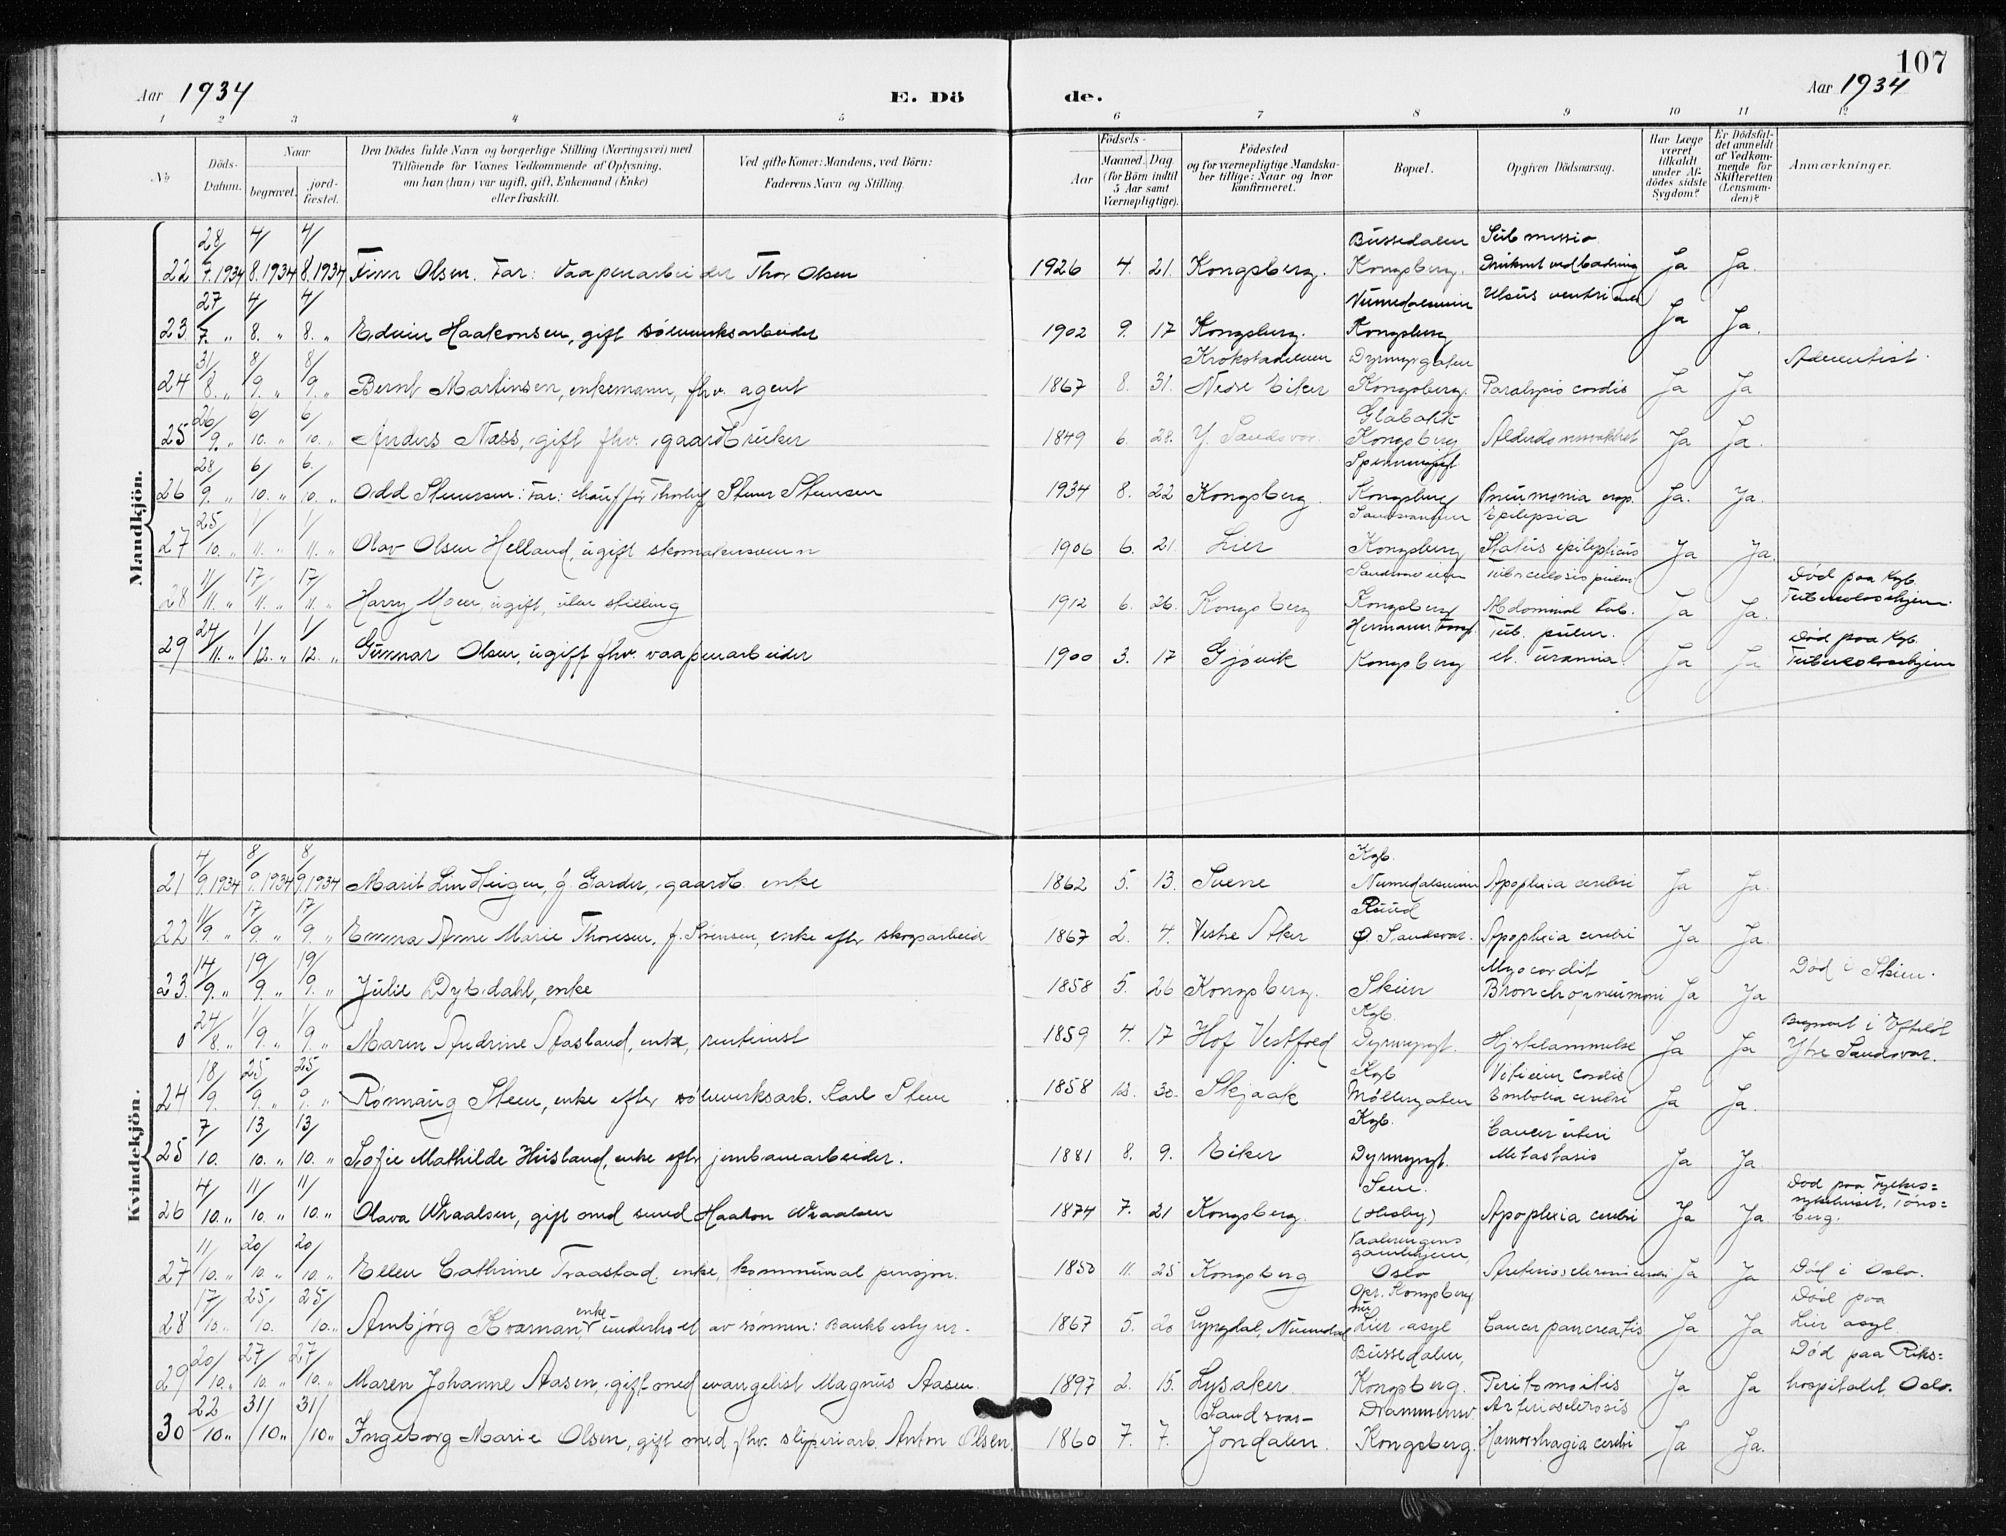 107
Aar 1934
E. Dö
de.
Aar 1934
1 2 3 4 5 6 7 8 9 10 11 12
No
Döds-Datum.
Naar begravet. jord-fæstet.
Den Dödes fulde Navn og borgerlige Stilling (Næringsvei) med
Tilföiende for Voxnes Vedkommende af Oplysning,
om han (hun) var ugift, gift, Enkemand (Enke)
eller fraskilt.
Ved gifte Koner: Mandens, ved Börn:
Faderens Navn og Stilling.
Födsels-
Aar
Maaned. Dag
(for Börn indtil
5 Aar samt
Værnepligtige).
Födested
og for værnepligtige Mandska-
ber tillige: Naar og hvor
konfirmeret.
Bopæl.
Opgiven Dödsaarsag.
Har Læge
været
tilkaldt
under Af-
dödes sidste
Sygdom?
Er Dödsfal-
det anmeldt
af Vedkom-
mende for
Skifteretten
(Lensman-
den)?
Anmærkninger.
Mandkjön.
22 28/7. 1934 4/8. 1934 4/8. 1934 Finn Olsen. Far: Vaapenarbeider Thor Olsen 1926 4. 21. Kongsberg. Bussedalen Kongsberg. Submersio Druknet ved badning Ja Ja.
23. 27/7. " 4/8. " 4/8. " Edvin Haakonsen, gift sölvverksarbeider 1902 9. 17 Kongsberg. Numedalsveien Kongsberg Ulcus ventriculi Ja Ja.
24 31/8. " 8/9. " 8/9. " Bernt Martinsen, enkemann, fhv. agent 1867 8. 31. Krokstadelven Nedre Eiker Dyrmyrgaten Kongsberg. Paralysis cordis Ja Ja Adventist.
25 26/9. " 6/10. " 6/10. " Anders Næss, gift fhv. gaardbruker 1849 6. 28. Y. Sandsvær. Glabakk Kongsberg Alderdomssvakhet Ja Ja.
26 28/9. " 6/10. " 6/10. " Odd Stensen: Far: chauffør Thorleif Stener Stensen 1934 8. 22 Kongsberg. Kongsberg Pneumonia crup. Ja. Ja.
27 25/10. " 1/11. " 1/11. " Olav Olsen Helland, ugift skomakersvenn 1906 6. 21. Lier Sandsværveien Kongsberg Epilepsia Status epilepticus Ja Ja.
28 11/11. " 17/11. " 17/11. " Harry Moen ugift, uten stilling 1912 6. 26. Kongsberg Sandsværveien Kongsberg Tuberculosis pulm. Abdominal tub. Ja Ja. Död paa Kgb. Tuberkolosehjem.
29 24/11. " 1/12. " 1/12. " Gunnar Olsen, ugift fhv. vaapenarbeider 1900 3. 17 Gjøvik Hermann Fossgt. Kongsberg Tub. pulm. et. uræmia. Ja Ja Död paa Kgb. Tuberkolosehjem
Kvindekjön.
21 4/9. 1934 8/9. 1934 8/9. 1934 Marit Lindteigen, f. Garder, gaardb. enke 1862 5. 13. Svene Kgb. Numedalsveien Apoplexia cerebri Ja Ja.
22 11/9. " 17/9. " 17/9. " Emma Anne Marie Thoresen, f. Sørensen, enke efter skogsarbeid 1867 2. 4. Vestre Aker Ruud Ø. Sandsvær. Apoplexia cerebri Ja Ja.
23. 14/9. " 19/9. " 19/9. " Julie Dybdahl, enke 1858 5. 26 Kongsberg. Skien Myocardit Bronchopneumoni Ja Ja Död i Skien.
0 24/8. " 1/9. " 1/9. " Maren Andrine Aasland, enke, rentenist 1859 4. 17 Hof Vestfold Kgb. Dyrmyrgt. Hjertelammelse Ja Ja Begravet i Efteløt Ytre Sandsvær.
24 18/9. 25/9. " 25/9. " Rønnaug Steen, enke efter sölvverksarb. Karl Steen 1858 12. 30. Skjaak Kgb Möllergaten Vitium cordis Embolia cerebri Ja Ja.
25 7/10. 13/10. " 13/10. " Sofie Mathilde Husland, enke eftr jernbanearbeider. 1881 8. 9. Eiker Kgb. Dyrmyrgt. Cancer uteri Metastasis Ja Ja.
26 4/10. " 11/10. " 11/10. " Olava Wraalsen, gift med smed Haakon Wraalsen 1874 7. 21 Kongsberg. Sem. (Olsby) Apoplexia cerebri Ja Ja. Död paa Fylkes=sykehuset, Töns=berg.
27 11/10. " 20/10. " 20/10. " Ellen Cathrine Traastad, enke, kommunal pensjon. 1850 11. 25 Kongsberg Vaalerengens gamlehjem, Oslo Arteriosclerosis cerebri Ja Ja Död i Oslo.
28 17/10. " 25/10. 25/10. " Ambjørg Kvarnan enke underholdt av sønnen: Bankbestyrer. 1867 5. 20 Lyngdal, Numedal Opr. Kongsberg nu Lier asyl Cancer pancreatis Ja Ja Död paa Lier asyl.
29 20/10. " 27/10. " 27/10. " Maren Johanne Aasen, gift med evangelist Magnus Aasen. 1897 2. 15. Lysaker. Bussedalen, Kongsberg. Peritonitis Ja Ja Död paa Riks=hospitalet Oslo.
30 22/10 " 31/10 " 31/10 " Ingeborg Marie Olsen, gift med fhv. sliperiarb. Anton Olsen. 1860 7. 7. Sandsvær- Jondalen. Drammensv. Kongsberg. Arteriosclerosis Hæmorrhagia cerebri Ja Ja.